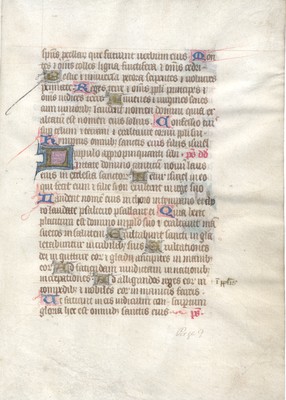 sp̄us procellar̄ que faciunt verbum eius Mon
tes ⁊ om̄s colles ligna fructifera ⁊ om̄s cedri
Bestie ⁊ universa pecora serpentes ⁊ volucres
pennate Reges terre ⁊ om̄s pp̄li principes ⁊
om̄s iudices terre Iuvenes ⁊ virgines senes
cum iuniorib; laudent nomen domini quia ex
altatum est nomen eius solius Confessio eius
sup̄ celum ⁊ terram ⁊ exaltavit cornu pp̄li sui
Hymnus omnibus sanctis eius filiis israel
populo appropinquanti sibi
Cantate domino canticum novum laus
eius in ecclesia sanctor̄ Letetur israel in eo
qui fecit eum ⁊ filie sion exultent in rege suo
Laudent nomen eius in choro in tympano ⁊
psalterio psallant ei Quia bene
placitum est domino in populo suo ⁊ exaltabit
mansuetos in salutem Exultabunt sancti in glia
letabuntur in cubilib; suis Exaltationes
dei in gutture eor̄ ⁊ gladii ancipites in manib;
eor̄ Ad faciendam vindictam in nationibus
increpationes Ad alligandos reges eor̄ in
in pp̄lis
compedib; ⁊ nobiles eor̄ in manicis ferreis
Ut faciant in eis iudicium conscriptum
gloria hec est omnib; sanctis eius ps.